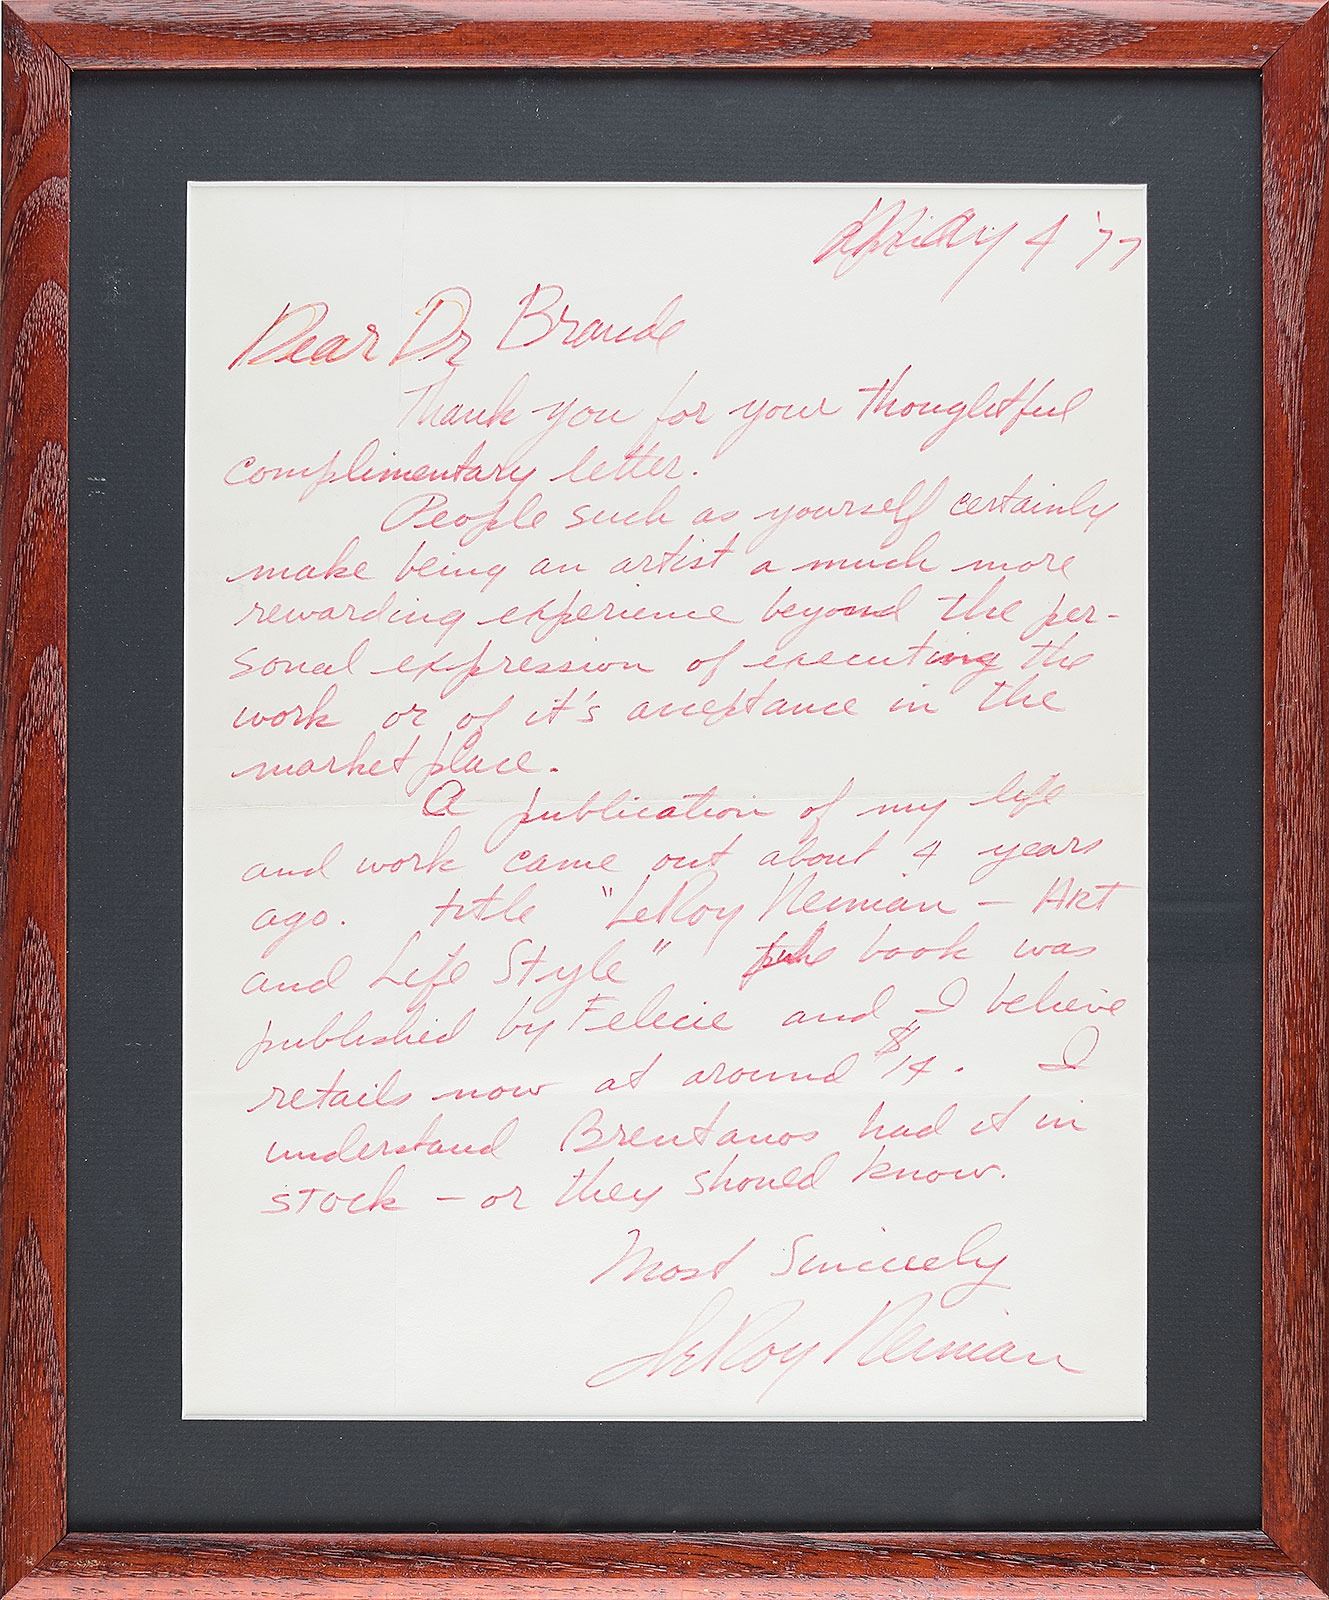 May 4 '77
Dear Dr Braude
Thank you for your thoughtful
complimentary letter.
People such as yourself certainly
make being an artist a much more
rewarding experience beyond the per-
sonal expression of executing the
work or of it's acceptance in the
market place.
A publication of my life
and work came out about 4 years
ago. title "LeRoy Neiman - Art
and Life Style" book was
published by Felicie and I believe
retails now at around $14. I
understand Brentanos had it in
stock - or they should know.
Most Sincerely
LeRoy Neiman